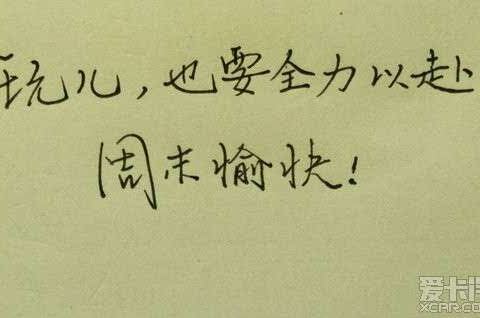 玩儿，也要全力以赴
周末愉快！
爱卡
XCAR.COM